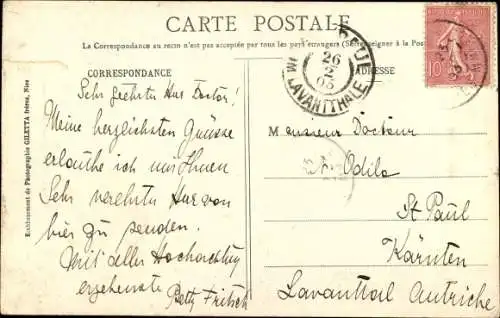 CARTE POSTALE
La Correspondance au recto n'est pas acceptée par tous les pays étrangers (Se renseigner à la Poste)
CORRESPONDANCE
ADRESSE
26
2
05
LAVANTTHALE
10
Etablissement de Photographie GILETTA frères, Nice
Sehr geehrter Herr Doctor!
Meine herzlichsten Grüsse
erlaube ich mir Ihnen
Sehr verehrter Herr von
hier zu senden.
Mit aller Hochachtung
ergebenste
Betty Fritsch
Monsieur Docteur
Odilo
St Paul
Kärnten
Lavanttal Autriche